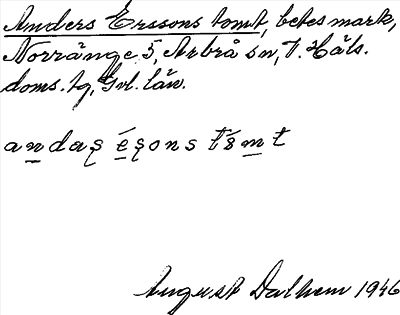 Anders Erssons tomt, betesmark,
Norränge 5, Arbrå sn, V. Häls.
doms. tg, Gvl. län.
andas̨ és̨ons
August Dalhem 1946